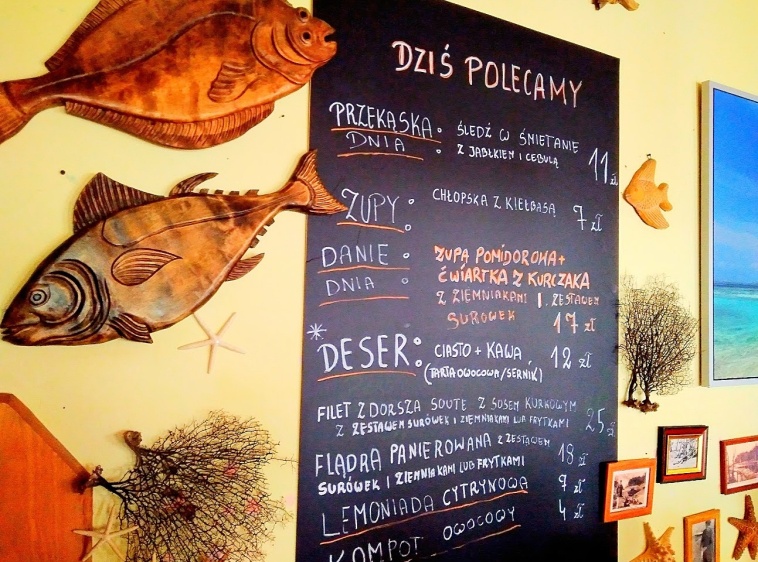 DZIŚ POLECAMY
PRZEKĄSKA DNIA : ŚLEDŹ W ŚMIETANIE
Z JABŁKIEM I CEBULĄ 11 zł
ZUPY : CHŁOPSKA Z KIEŁBASĄ 7 zł
DANIE DNIA : ZUPA POMIDOROWA +
ĆWIARTKA Z KURCZAKA
Z ZIEMNIAKAMI I ZESTAWEM
SURÓWEK 17 zł
* DESER : CIASTO + KAWA 12 zł
(TARTA OWOCOWA / SERNIK)
FILET Z DORSZA SOUTE Z SOSEM KURKOWYM
Z ZESTAWEM SURÓWEK I ZIEMNIAKAMI LUB FRYTKAMI 25 zł
FLĄDRA PANIEROWANA Z ZESTAWEM
SURÓWEK I ZIEMNIAKAMI LUB FRYTKAMI 18 zł
LEMONIADA CYTRYNOWA 9 zł
KOMPOT OWOCOWY 4 zł